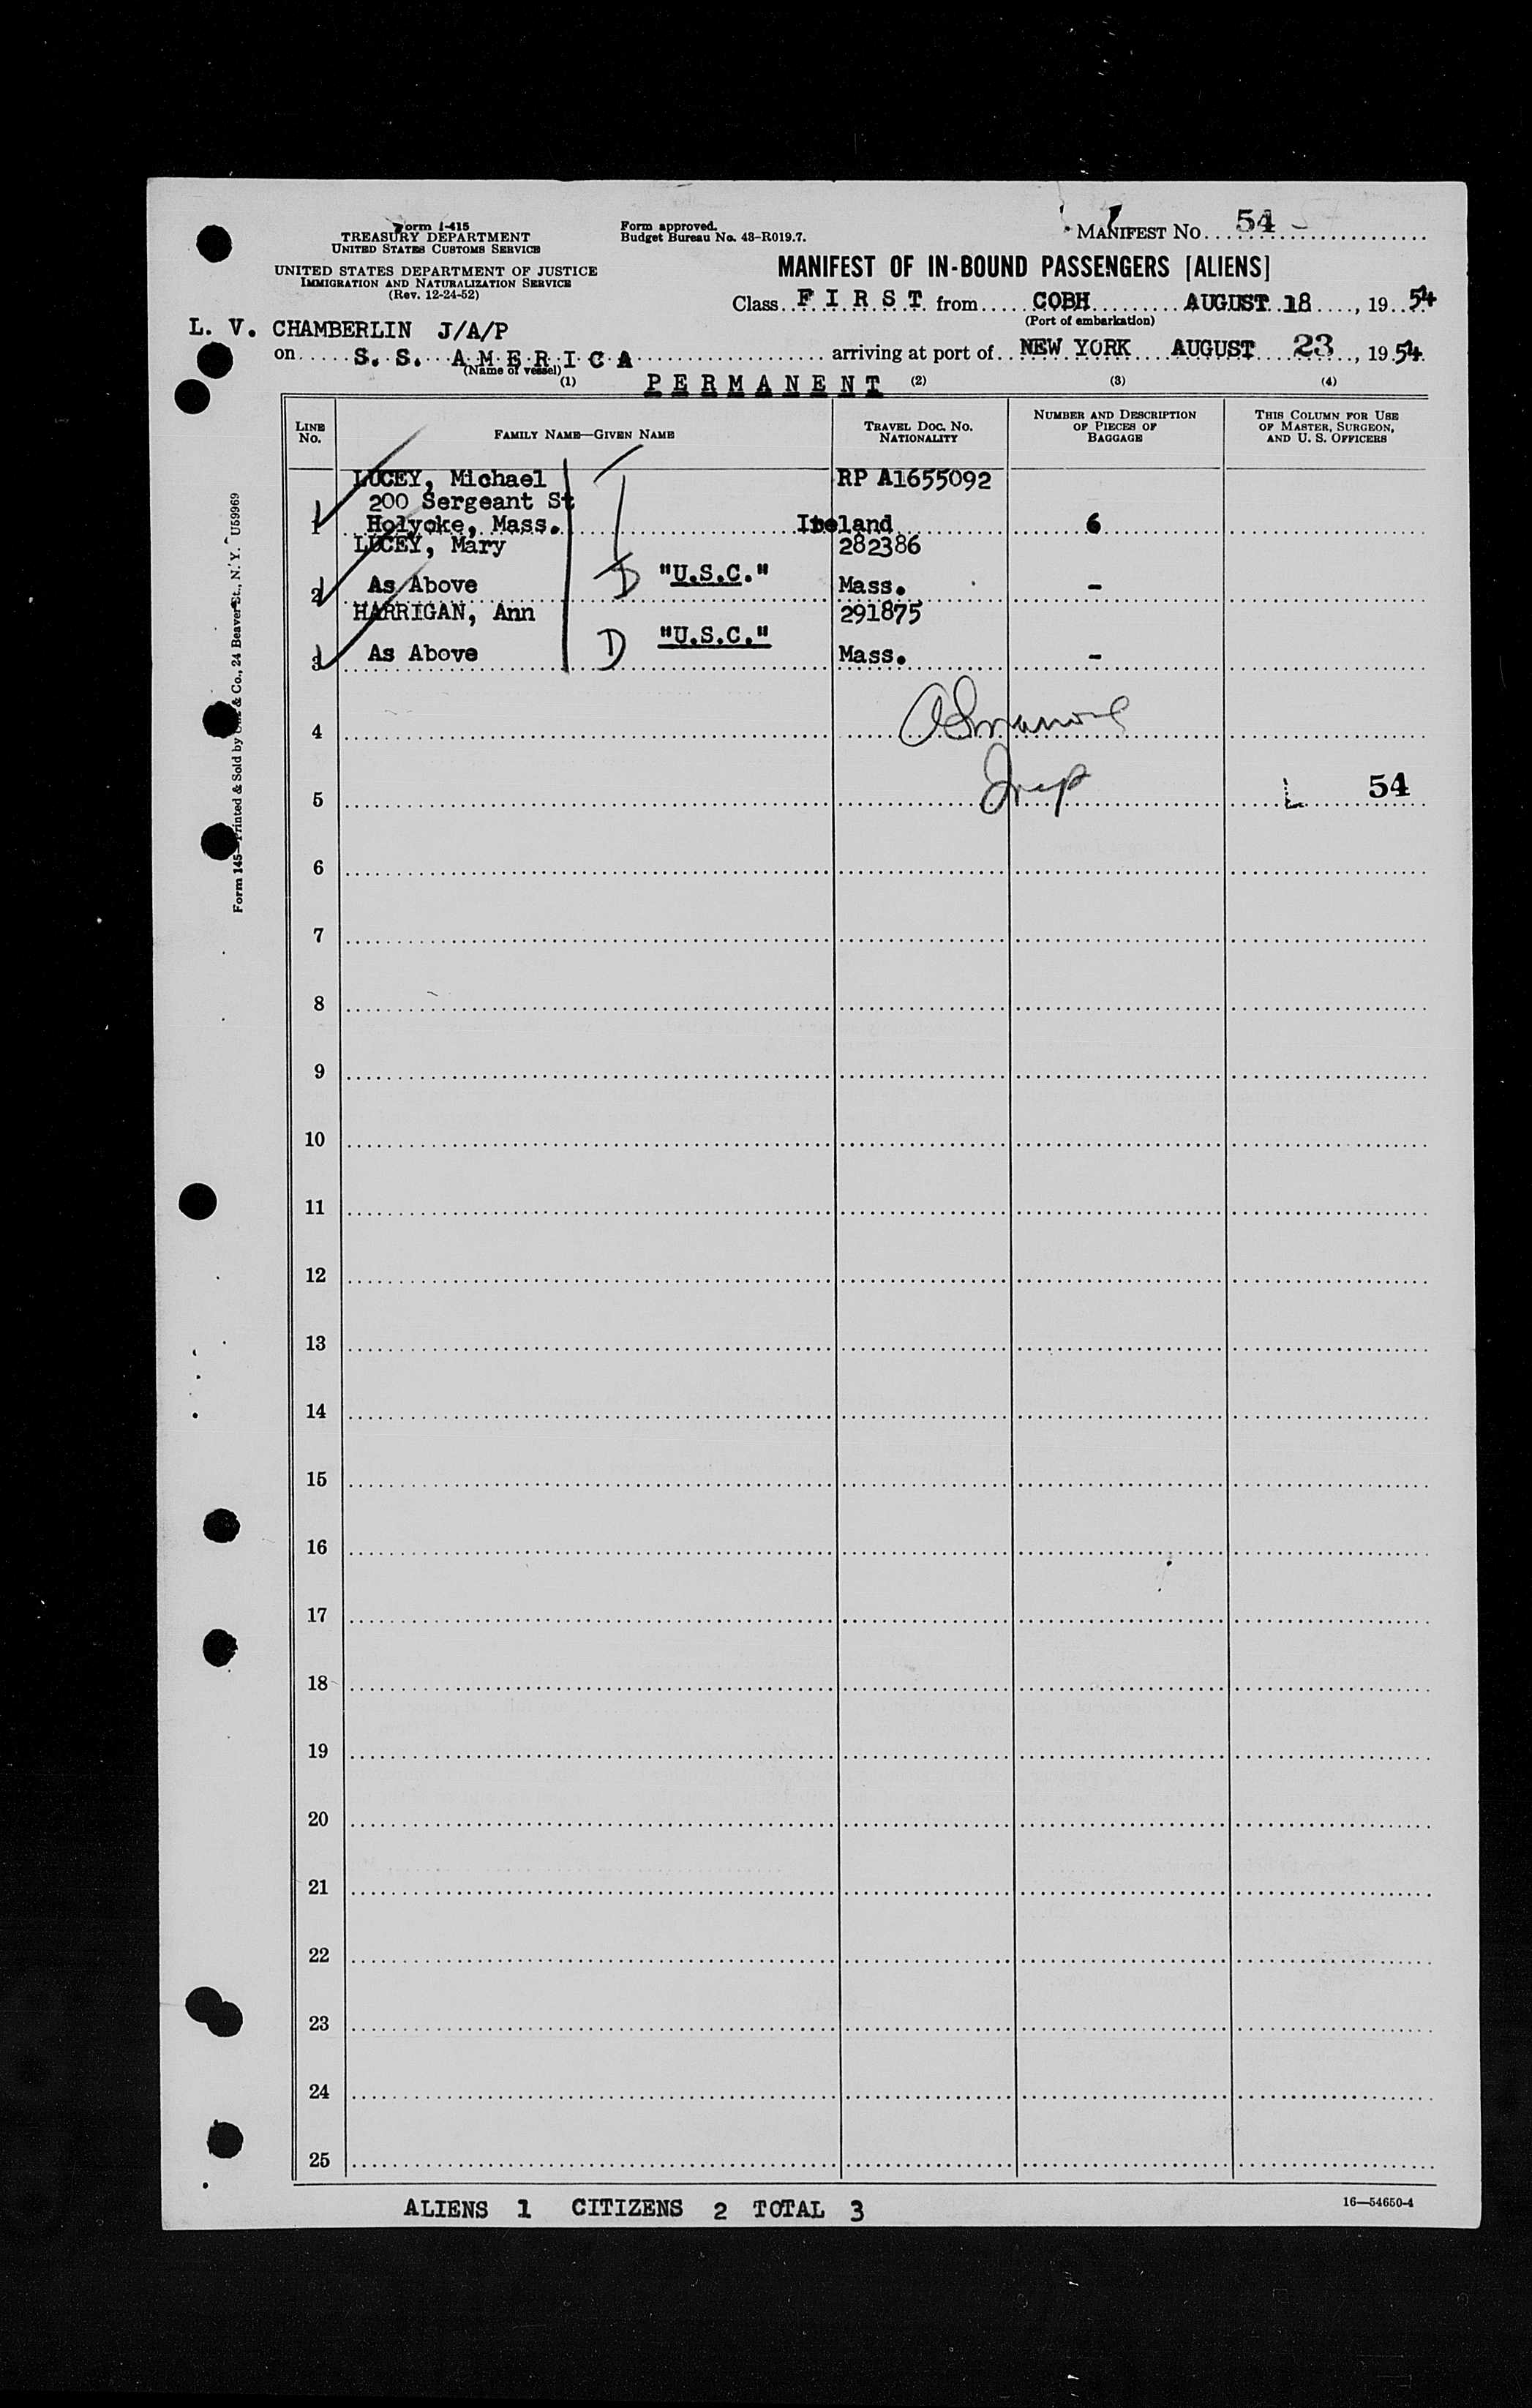 Form I-415
TREASURY DEPARTMENT
UNITED STATES CUSTOMS SERVICE
UNITED STATES DEPARTMENT OF JUSTICE
IMMIGRATION AND NATURALIZATION SERVICE
(Rev. 12-24-52)
Form approved.
Budget Bureau No. 43-R019.7.
MANIFEST NO. 54
MANIFEST OF IN-BOUND PASSENGERS [ALIENS]
Class FIRST from COBH AUGUST 18, 1954
(Port of embarkation)
L. V. CHAMBERLIN J/A/P
on S. S. AMERICA arriving at port of NEW YORK AUGUST 23, 1954
(Name of vessel)
(1) PERMANENT (2) (3) (4)
LINE NO. FAMILY NAME—GIVEN NAME TRAVEL DOC. NO. NATIONALITY NUMBER AND DESCRIPTION OF PIECES OF BAGGAGE THIS COLUMN FOR USE OF MASTER, SURGEON, AND U. S. OFFICERS
LUCEY, Michael RP A1655092
200 Sergeant St
1 Holyoke, Mass. Ireland 6
LUCEY, Mary 282386
2 As Above D "U.S.C." Mass. -
HARRIGAN, Ann 291875
3 As Above D "U.S.C." Mass. -
4
5 L 54
6
7
8
9
10
11
12
13
14
15
16
17
18
19
20
21
22
23
24
25
ALIENS 1 CITIZENS 2 TOTAL 3
16—54650-4
Form 145—Printed & Sold by & Co., 24 Beaver St., N. Y. U59969